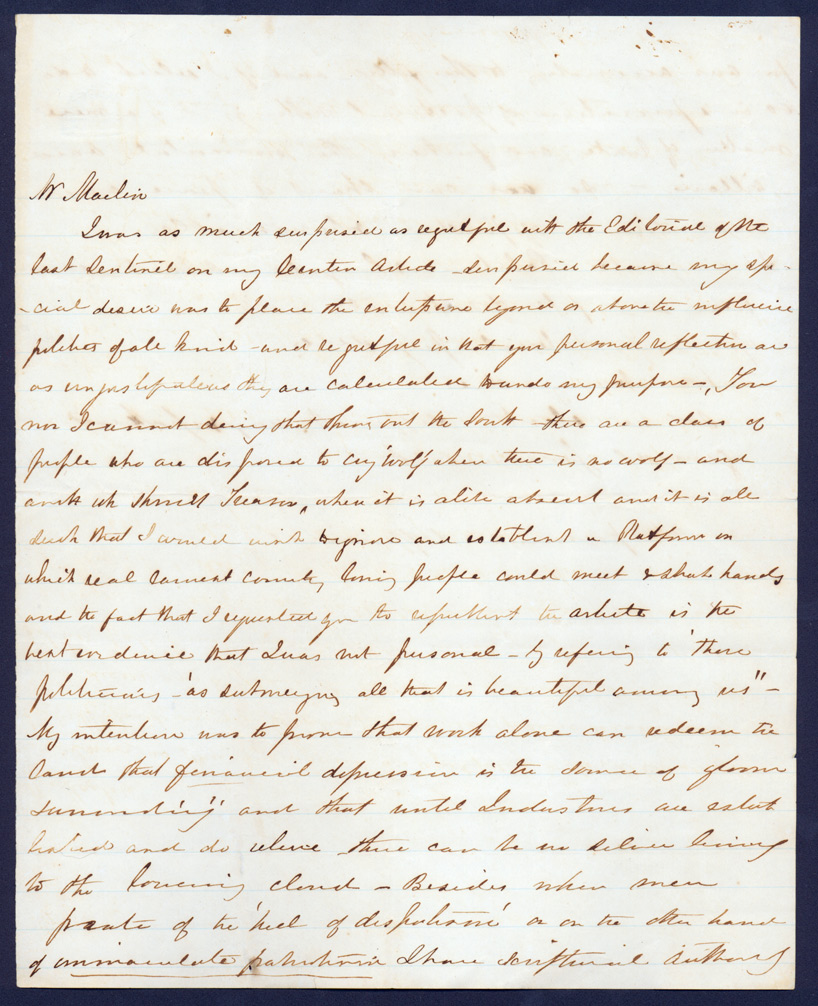 Mr Maclin
I was as much surprised as regretful with the Editorial of the
last Sentinel on my Article surprised because my spe-
-cial desire was to place the enterprise beyond or above the influence
politics of all kind - and regretful in that your personal reflection are
as unjustifiable as they are calculated to undo my purpose -, You
nor I cannot deny that through out the South there are a class of
people who are disposed to cry 'wolf' when there is no wolf - and
Treason, when it is alike absent and it is all
such that I would wish to ignore and establish a Platform on
which real earnest country loving people could meet & shake hands
and the fact that I requested you to republish the article is the
best evidence that I was not personal - by refering to 'those
politicians - 'as submerging all that is beautiful among us" -
My intention was to prove that work alone can redeem the
land that financial depression is the source of gloom
surrounding and that until Industries are estab
lished and do thrive there can be no silver lining
to the louring cloud - Besides when men
prate of the 'heel of despotism' or on the other hand
of immaculate patriotism I have scriptural authority